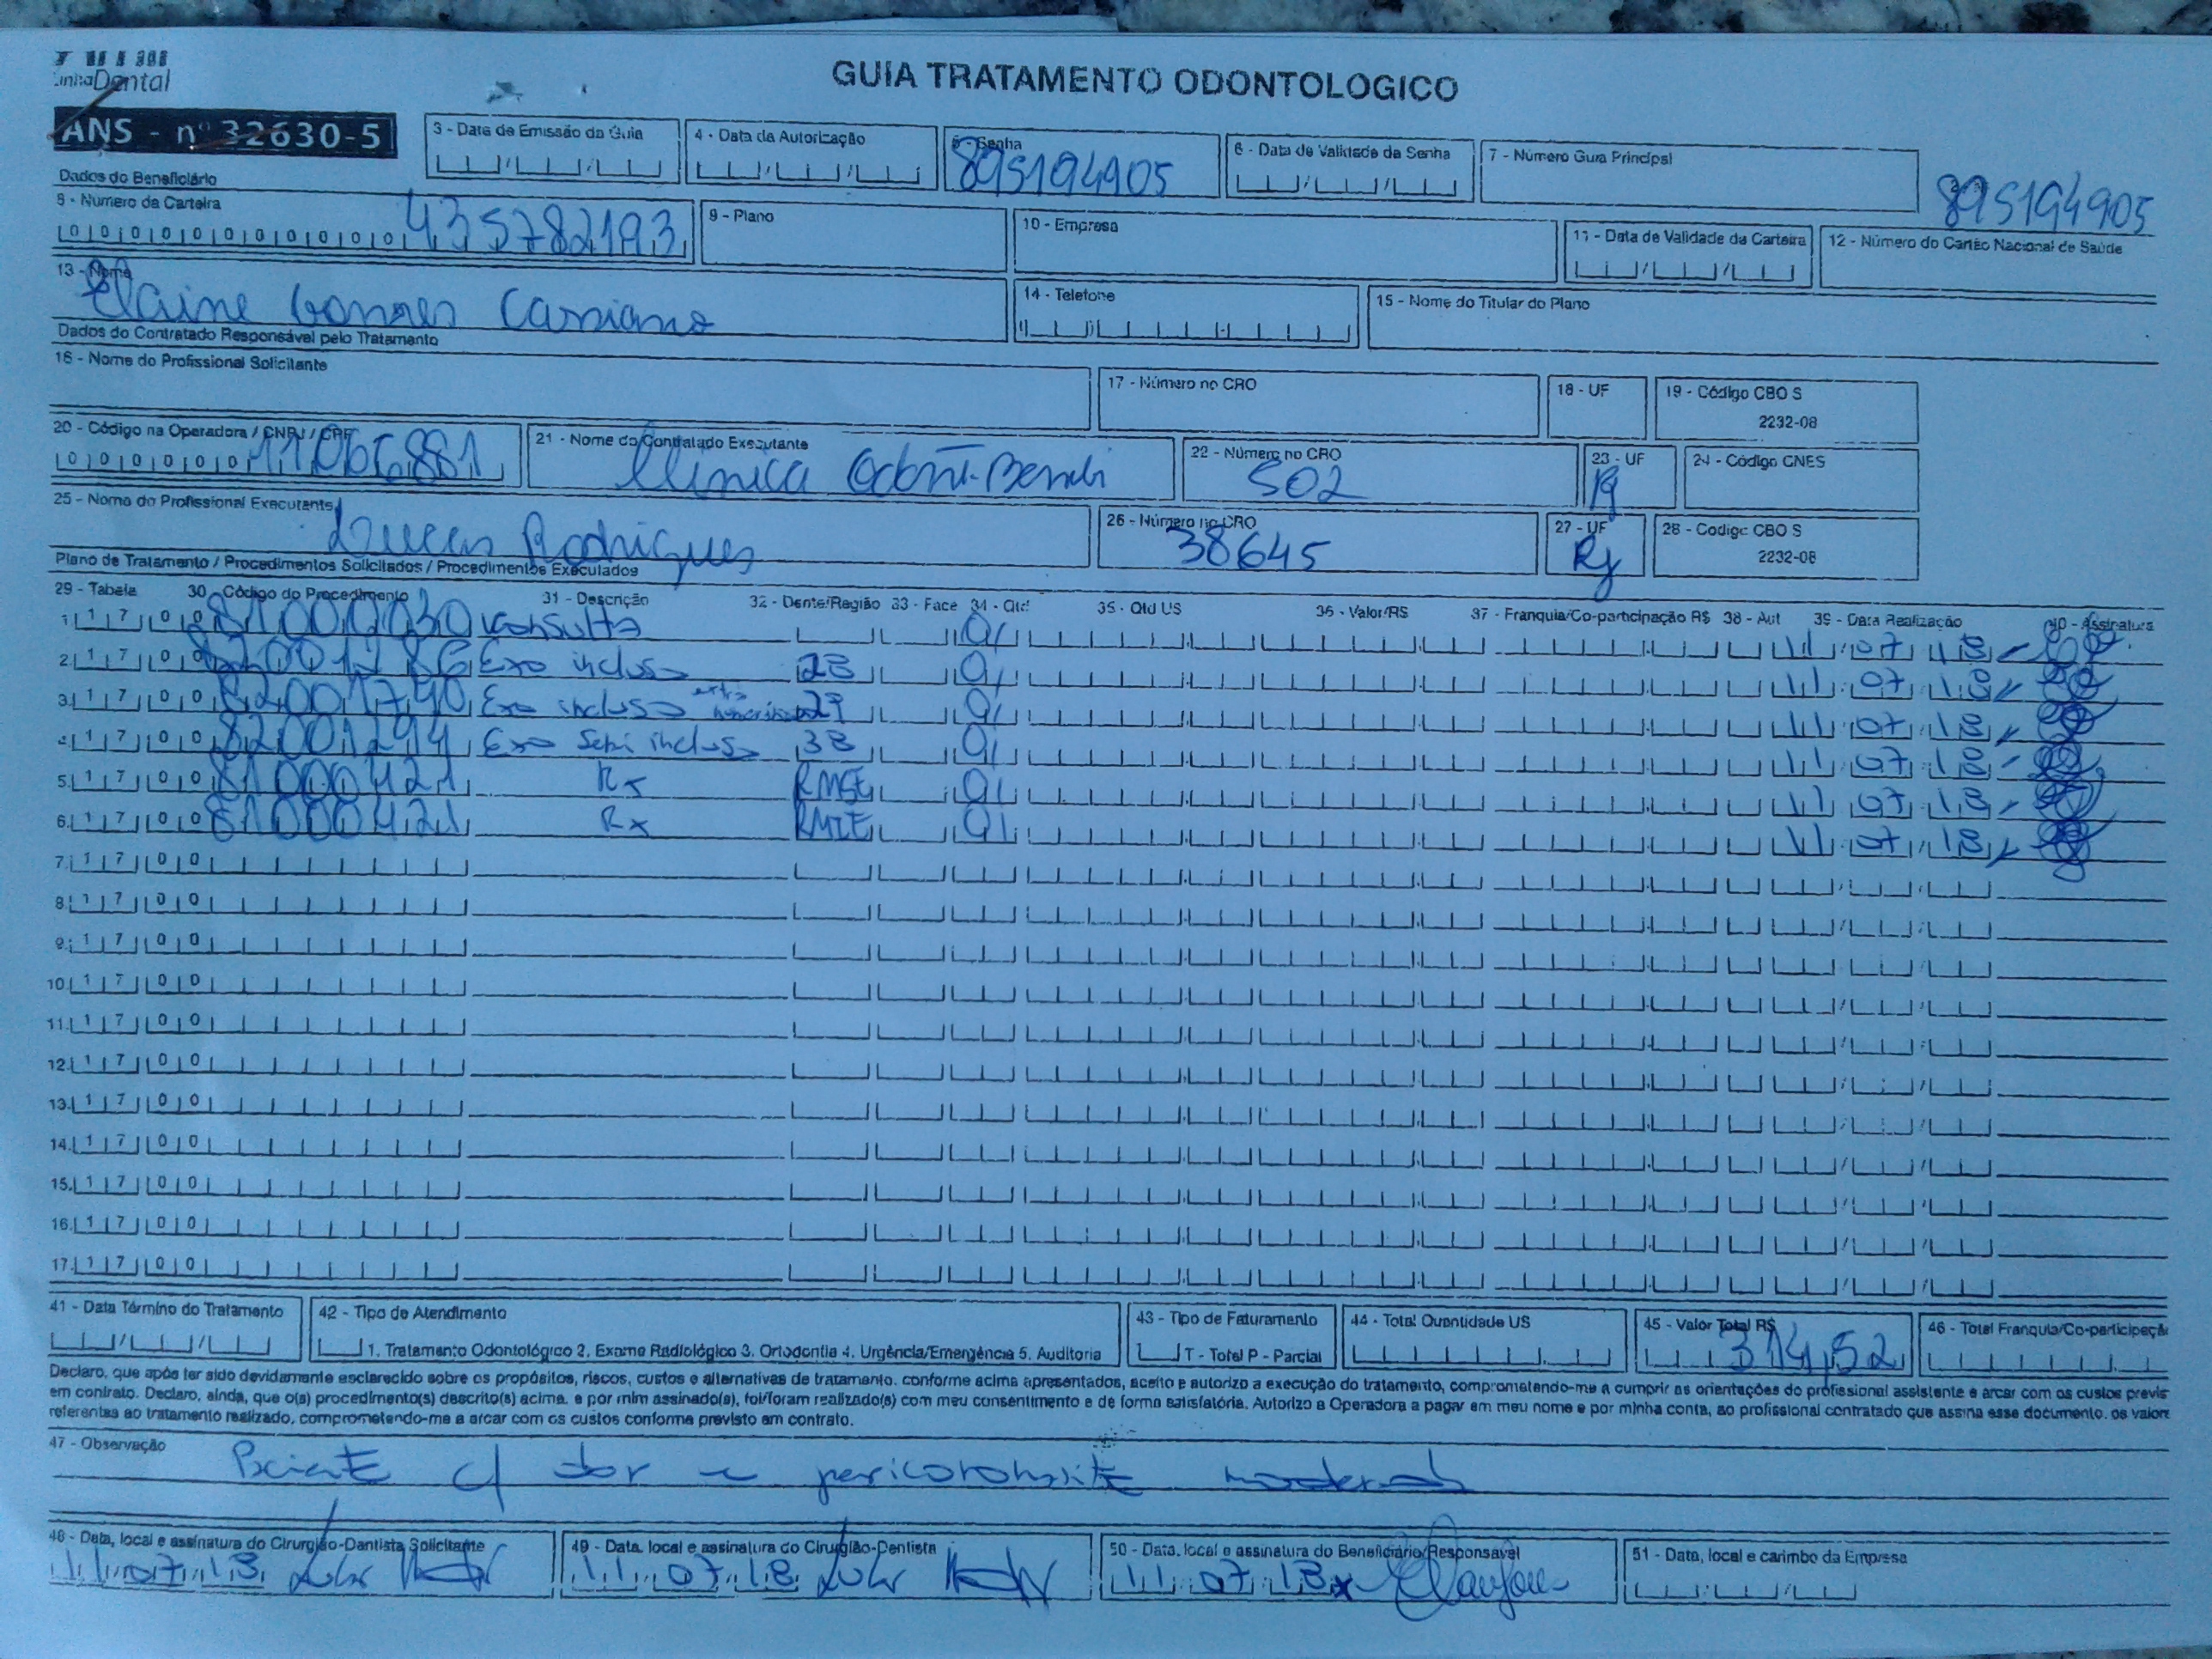 Dental
GUIA TRATAMENTO ODONTOLOGICO
ANS - nº 32630-5
3 - Data de Emissão da Guia
4 - Data da Autorização
5 - Senha
895194905
6 - Data de Validade da Senha
7 - Número Guia Principal
895194905
Dados do Beneficiário
8 - Número da Carteira
0 0 0 0 0 0 0 0 0 0 0 435782193
9 - Plano
10 - Empresa
11 - Data de Validade da Carteira
12 - Número do Cartão Nacional de Saúde
13 - Nome
Elaine Gomes Cassiano
14 - Telefone
15 - Nome do Titular do Plano
Dados do Contratado Responsável pelo Tratamento
16 - Nome do Profissional Solicitante
17 - Número no CRO
18 - UF
19 - Código CBO S
2232-08
20 - Código na Operadora / CNPJ / CPF
0 0 0 0 0 0 11066881
21 - Nome do Contratado Executante
Clinica
22 - Número no CRO
502
23 - UF
Rj
24 - Código CNES
25 - Nome do Profissional Executante
Lucas Rodrigues
26 - Número no CRO
38645
27 - UF
Rj
28 - Codigo CBO S
2232-08
Plano de Tratamento / Procedimentos Solicitados / Procedimentos Executados
29 - Tabela 30 - Código do Procedimento 31 - Descrição 32 - Dente/Região 33 - Face 34 - Qtd 35 - Qtd US 36 - Valor/R$ 37 - Franquia/Co-participação R$ 38 - Aut 39 - Data Realização 40 - Assinatura
1 1 7 0 0 81000030 Consulta 01 11 07 18
2 1 7 0 0 82001286 Exo incluso 28 01 11 07 18
3 1 7 0 0 82001740 Exo incluso extra 29 01 11 07 18
4 1 7 0 0 82001294 Exo Semi incluso 38 01 11 07 18
5 1 7 0 0 81000421 Rx RMSE 01 11 07 18
6 1 7 0 0 81000421 Rx RMIE 01 11 07 18
7 1 7 0 0
8 1 7 0 0
9 1 7 0 0
10 1 7 0 0
11 1 7 0 0
12 1 7 0 0
13 1 7 0 0
14 1 7 0 0
15 1 7 0 0
16 1 7 0 0
17 1 7 0 0
41 - Data Término do Tratamento
42 - Tipo de Atendimento
1. Tratamento Odontológico 2. Exame Radiológico 3. Ortodontia 4. Urgência/Emergência 5. Auditoria
43 - Tipo de Faturamento
T - Total P - Parcial
44 - Total Quantidade US
45 - Valor Total R$
314,52
46 - Total Franquia/Co-participaçã
Declaro, que após ter sido devidamente esclarecido sobre os propósitos, riscos, custos e alternativas de tratamento, conforme acima apresentados, aceito e autorizo a execução do tratamento, comprometendo-me a cumprir as orientações do profissional assistente e arcar com os custos previs
em contrato. Declaro, ainda, que o(s) procedimento(s) descrito(s) acima, e por mim assinado(s), foi/foram realizado(s) com meu consentimento e de forma satisfatória. Autorizo a Operadora a pagar em meu nome e por minha conta, ao profissional contratado que assina esse documento, os valore
referentes ao tratamento realizado, comprometendo-me a arcar com os custos conforme previsto em contrato.
47 - Observação
Paciente c/ dor e pericoronarite moderada
48 - Data, local e assinatura do Cirurgião-Dentista Solicitante
11 07 18
49 - Data, local e assinatura do Cirurgião-Dentista
11 07 18
50 - Data, local e assinatura do Beneficiário/Responsável
11 07 18 x
51 - Data, local e carimbo da Empresa